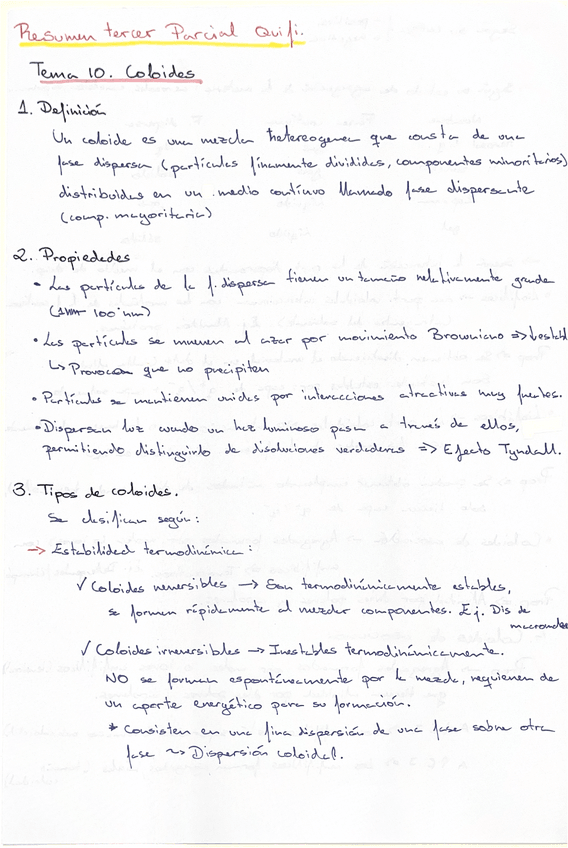 Resumen tercer Parcial Quifi.
Tema 10. Coloides
1. Definición
Un coloide es una mezcla heterogenea que consta de una
fase dispersa (partículas finamente divididas, componentes minoritarios)
distribuidas en un medio contínuo llamado fase dispersante
(comp. mayoritaria)
2. Propiedades
• Las partículas de la f. dispersa tienen un tamaño relativamente grande
(1nm- 100 nm)
• Las partículas se mueven al azar por movimiento Browniano =>
↳ Provocan que no precipiten
• Partículas se mantienen unidas por interacciones atractivas muy fuertes.
• Dispersan luz cuando un haz luminoso pasa a través de ellos,
permitiendo distinguirlo de disoluciones verdaderas => Efecto Tyndall.
3. Tipos de coloides.
Se clasifican según:
→ Estabilidad termodinámica:
✓ Coloides reversibles → Son termodinámicamente estables,
se forman rápidamente al mezclar componentes. Ej. Dis de
✓ Coloides irreversibles → Inestables termodinámicamente.
NO se forman espontáneamente por la mezcla, requieren de
un aporte energético para su formación.
* Consisten en una fina dispersión de una fase sobre otra
fase ~> Dispersión coloidal.